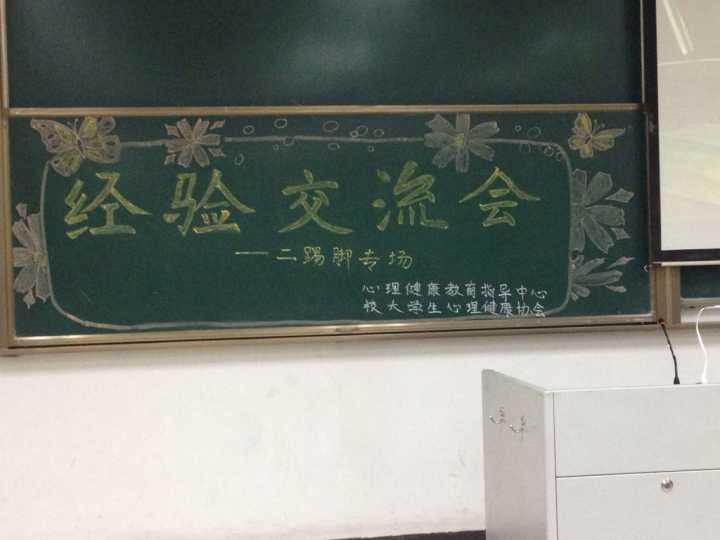 经验交流会
——二踢脚专场
心理健康教育指导中心
校大学生心理健康协会